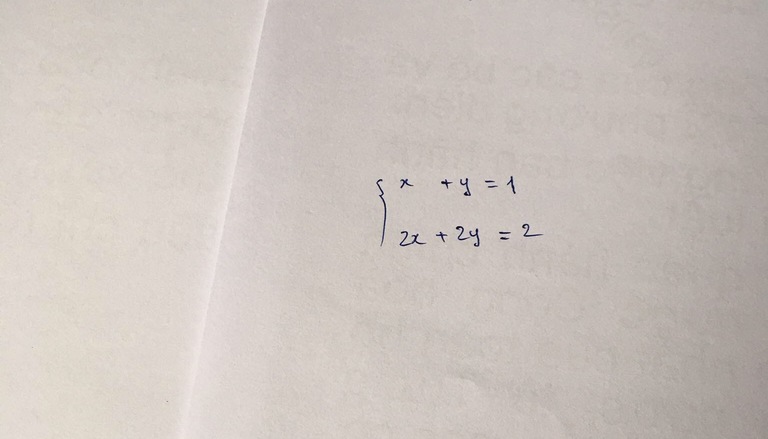 x + y = 1
2x + 2y = 2